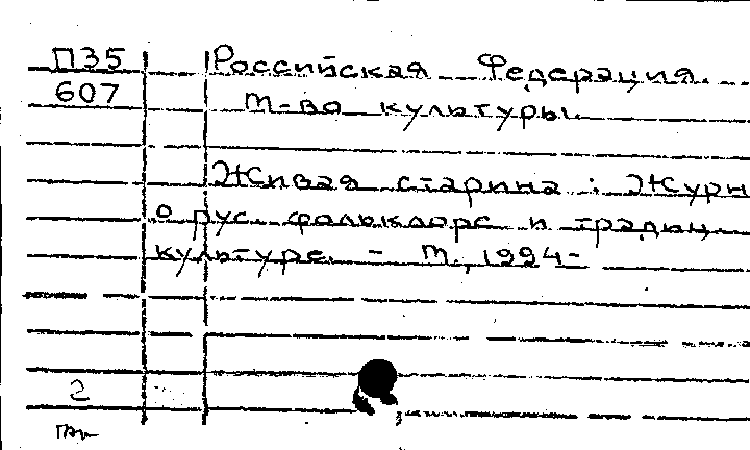 П35
607
Российская Федерация.
М-во культуры.
Живая старина : Журн
о рус. фольклоре и традиц.
культуре. - М., 1994-
2